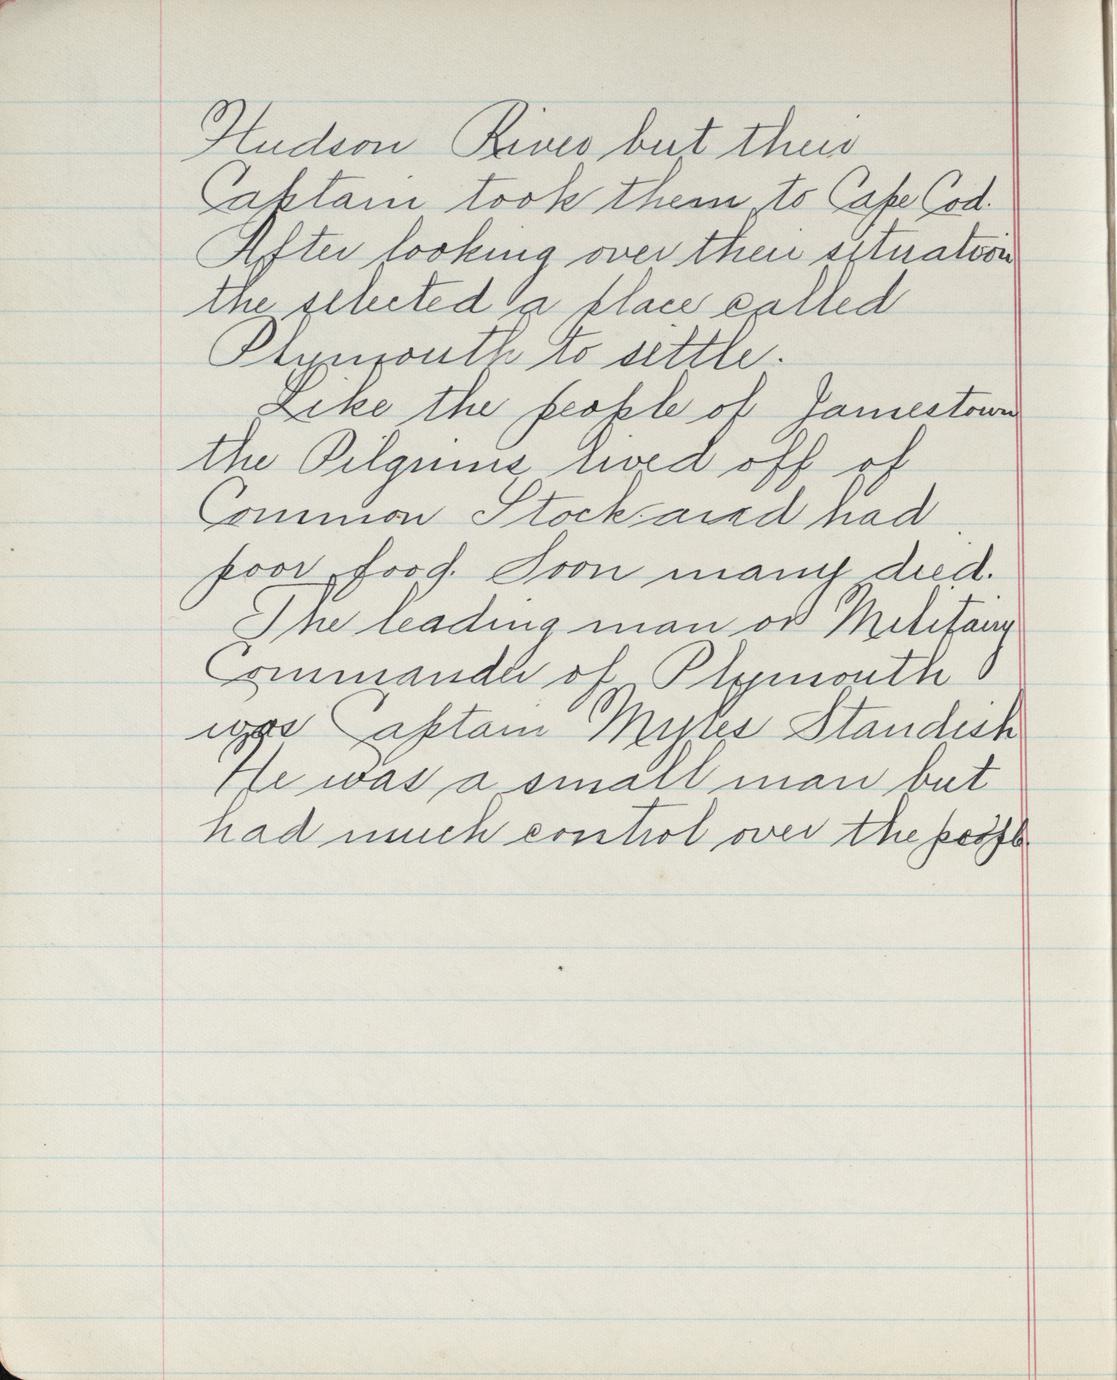 Hudson River but their
Captain took them to Cape Cod.
After looking over their situation
the selected a place called
Plymouth to settle.
Like the people of Jamestown
the Pilgrims lived off of
Common Stock and had
poor food. Soon many died.
The leading man or Militairy
Commander of Plymouth
was Captain Myles Standish
He was a small man but
had much control over the people.